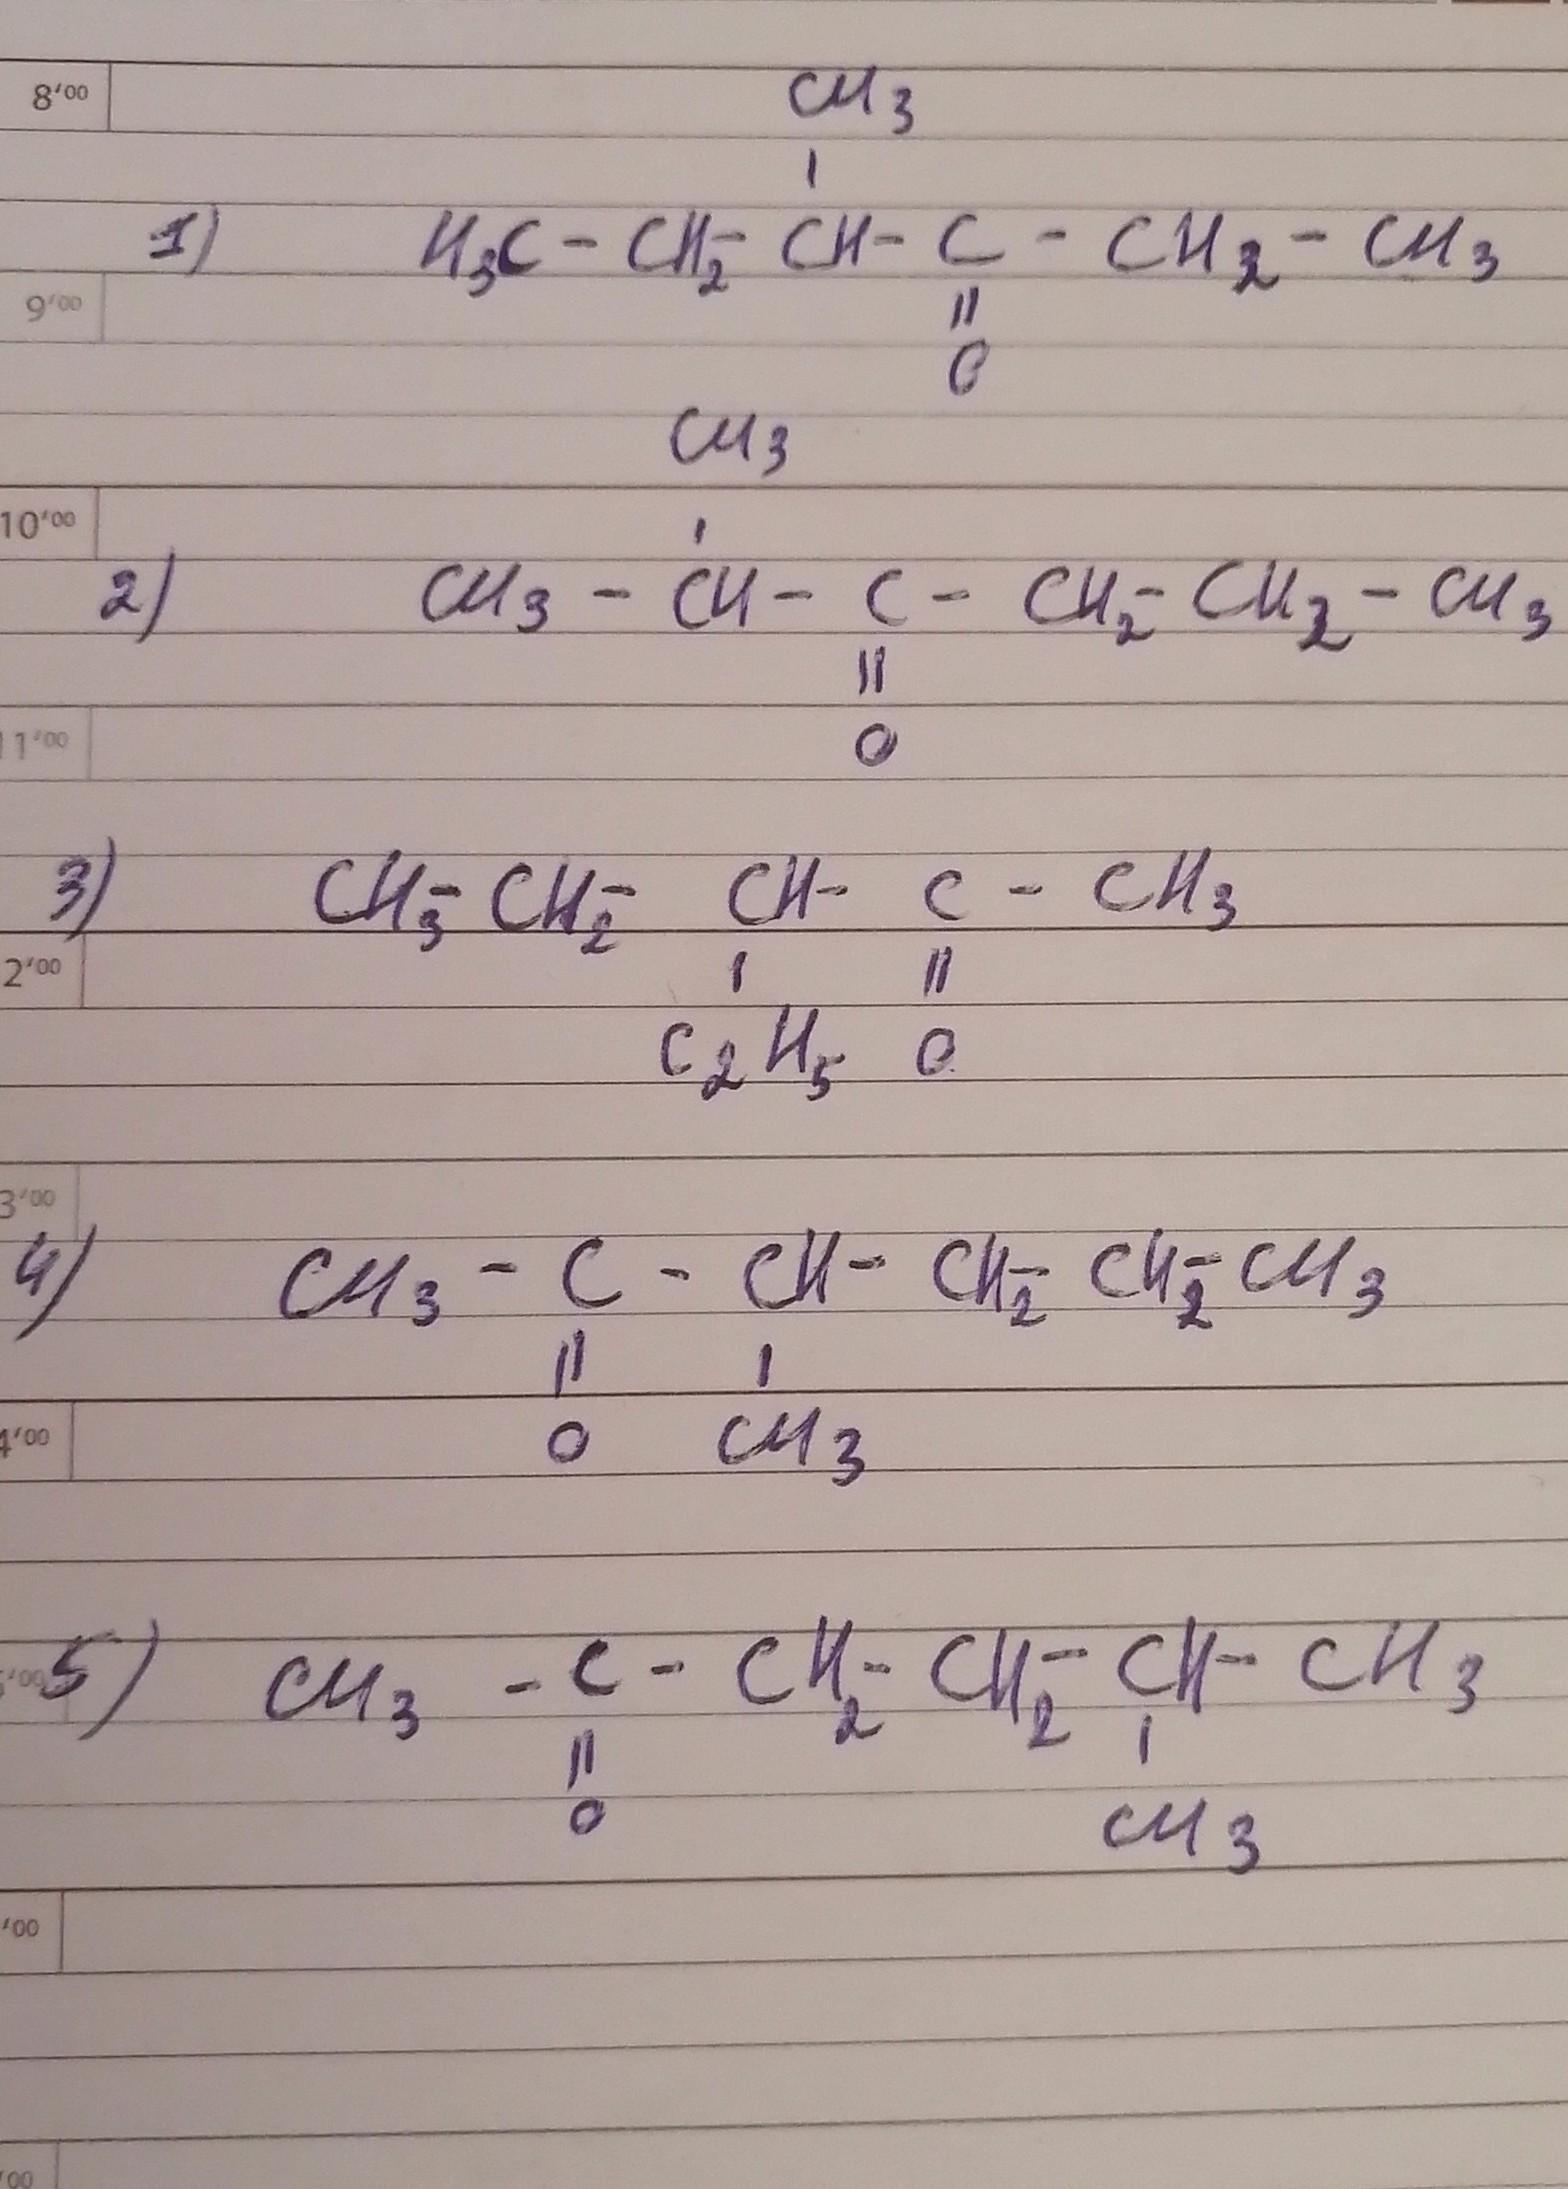 8,00
CH3
|
1) H3C - CH2- CH- C - CH2 - CH3
9,00
||
O
CH3
10,00
|
2) CH3 - CH - C - CH2- CH2 - CH3
||
11,00
O
3) CH3- CH2- CH- C - CH3
2,00
| ||
C2H5 O
3,00
4) CH3 - C - CH- CH2- CH2- CH3
|| |
4,00
O CH3
5) CH3 - C - CH2- CH2- CH- CH3
,00
|| |
O CH3
,00
00